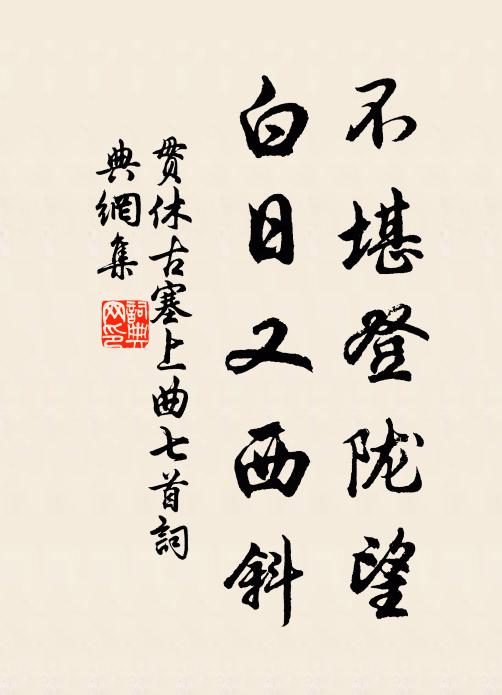 不堪登陇望
白日又西斜
贯休古塞上曲七首詞
典網集
詞典网印